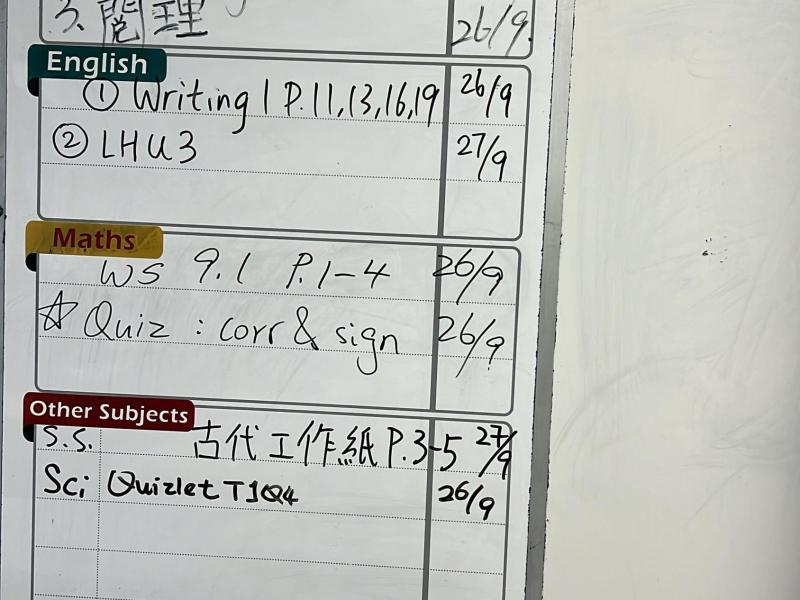 3. 閱理 26/9.
English
① Writing 1 P.11,13,16,19 26/9
② LHU3 27/9
Maths
WS 9.1 P.1-4 26/9
☆ Quiz : corr & sign 26/9
Other Subjects
S.S. 古代工作紙 P.3-5 27/9
Sci Quizlet T1Q4 26/9